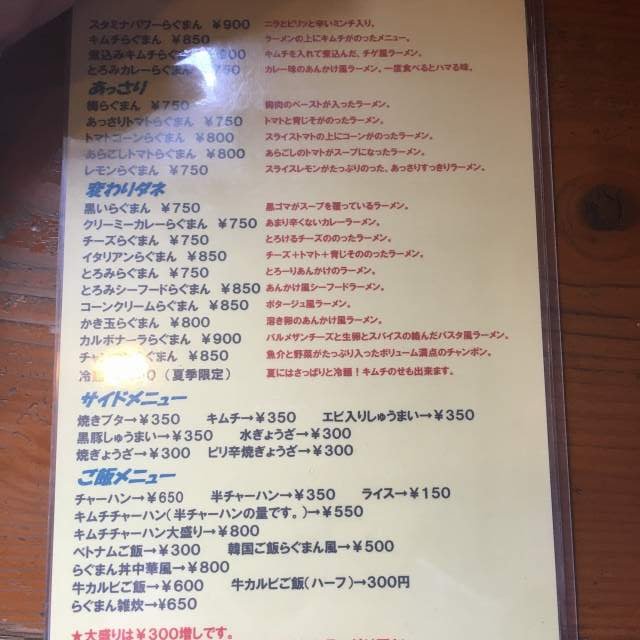 スタミナパワーらぐまん ￥900 ニラとピリッと辛いミンチ入り。
キムチらぐまん ￥850 ラーメンの上にキムチがのったメニュー。
煮込みキムチらぐまん ￥850 キムチを入れて煮込んだ、チゲ風ラーメン。
とろみカレーらぐまん ￥850 カレー味のあんかけ風ラーメン。一度食べるとハマる味。
あっさり
梅らぐまん ￥750 梅肉のペーストが入ったラーメン。
あっさりトマトらぐまん ￥750 トマトと青じそがのったラーメン。
トマトコーンらぐまん ￥800 スライストマトの上にコーンがのったラーメン。
あらごしトマトらぐまん ￥800 あらごしのトマトがスープになったラーメン。
レモンらぐまん ￥750 スライスレモンがたっぷりの、あっさりすっきりラーメン。
変わりダネ
黒いらぐまん ￥750 黒ゴマがスープを覆っているラーメン。
クリーミーカレーらぐまん ￥750 あまり辛くないカレーラーメン。
チーズらぐまん ￥750 とろけるチーズののったラーメン。
イタリアンらぐまん ￥850 チーズ＋トマト＋青じそののったラーメン。
とろみらぐまん ￥750 とろーりあんかけのラーメン。
とろみシーフードらぐまん ￥850 あんかけ風シーフードラーメン。
コーンクリームらぐまん ￥850 ポタージュ風ラーメン。
かき玉らぐまん ￥800 溶き卵のあんかけ風ラーメン。
カルボナーラらぐまん ￥900 パルメザンチーズと生卵とスパイスの絡んだパスタ風ラーメン。
らぐまん ￥850 魚介と野菜がたっぷり入ったボリューム満点のチャンポン。
冷 （夏季限定） 夏にはさっぱりと冷麺！キムチのせも出来ます。
サイドメニュー
焼きブタ→￥350 キムチ→￥350 エビ入りしゅうまい→￥350
黒豚しゅうまい→￥350 水ぎょうざ→￥300
焼ぎょうざ→￥300 ピリ辛焼ぎょうざ→￥300
ご飯メニュー
チャーハン→￥650 半チャーハン→￥350 ライス→￥150
キムチチャーハン（半チャーハンの量です。）→￥550
キムチチャーハン大盛り→￥800
ベトナムご飯→￥300 韓国ご飯らぐまん風→￥500
らぐまん丼中華風→￥800
牛カルビご飯→￥600 牛カルビご飯（ハーフ）→300円
らぐまん雑炊→￥650
★大盛りは￥300増しです。